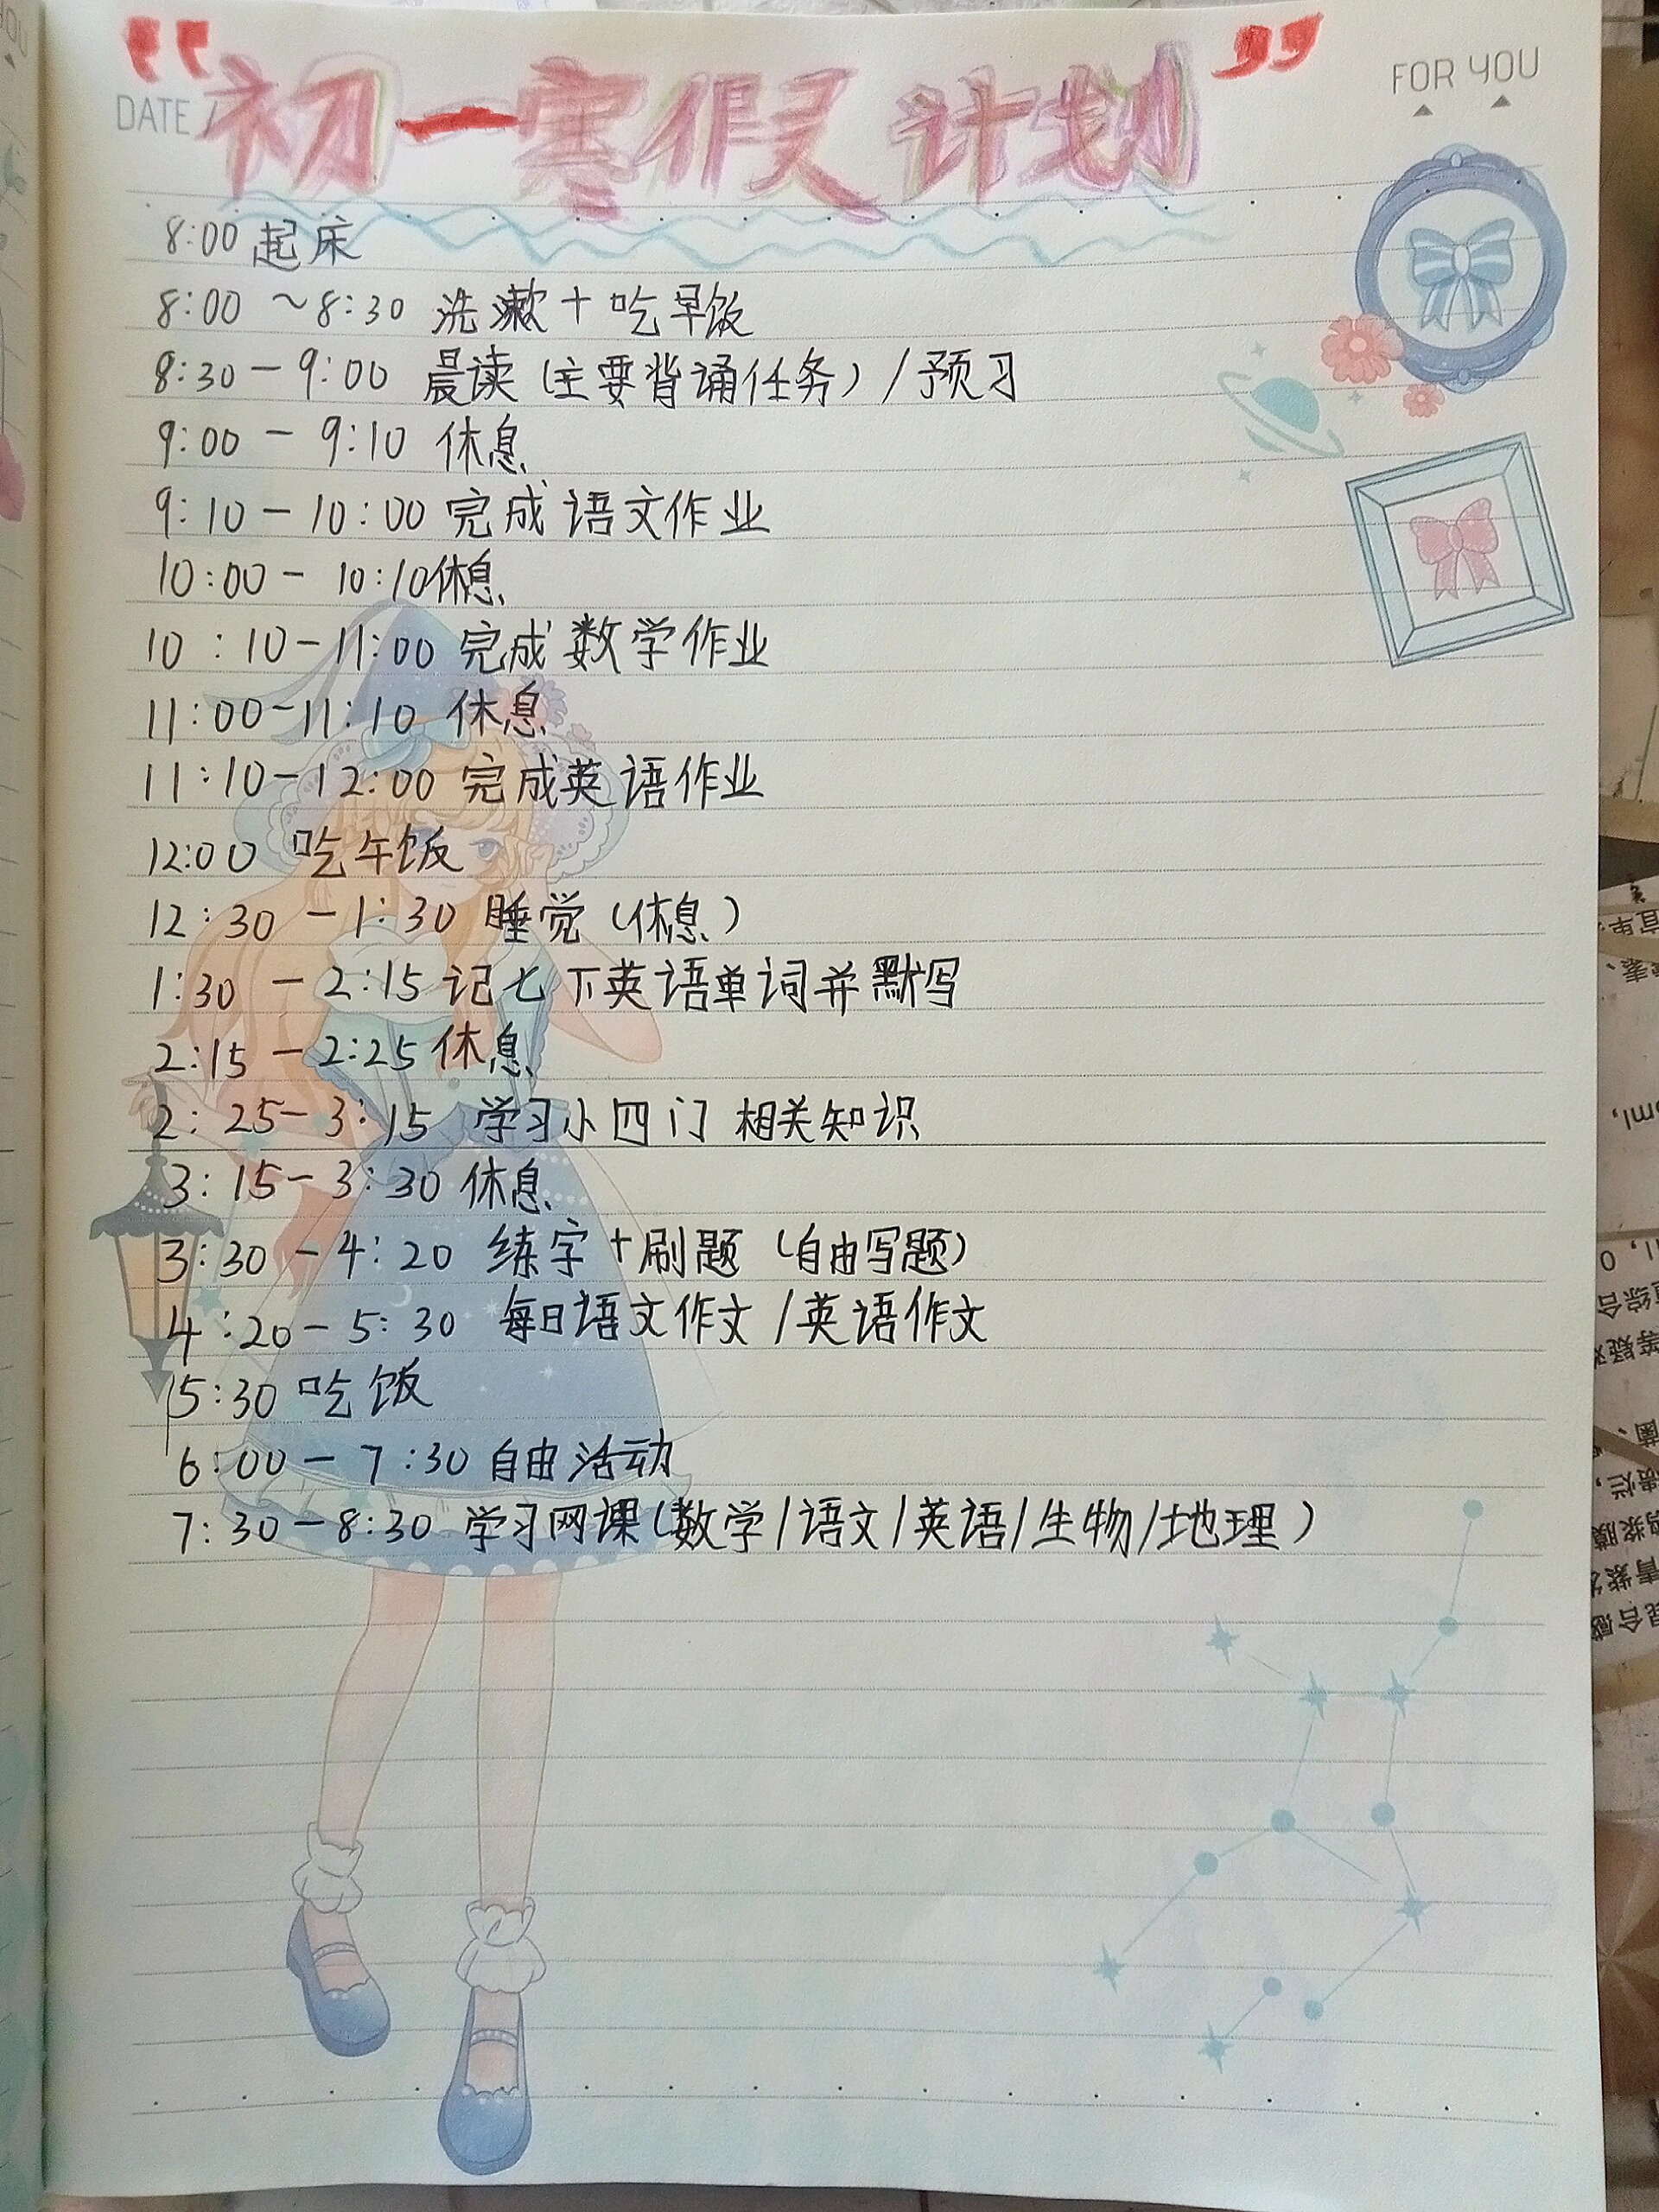 DATE /
FOR YOU
“初一寒假灵计划”
8:00 起床
8:00 ~8:30 洗漱+吃早饭
8:30-9:00 晨读(主要背诵任务)/预习
9:00 - 9:10 休息
9:10-10:00 完成语文作业
10:00- 10:10休息
10:10-11:00 完成数学作业
11:00-11:10 休息
11:10-12:00 完成英语作业
12:00 吃午饭
12:30 -1:30 睡觉(休息)
1:30 -2:15 记七下英语单词并默写
2:15 -2:25 休息
2:25-3:15 学习小四门相关知识
3:15-3:30 休息
3:30 -4:20 练字+刷题(自由写题)
4:20-5:30 每日语文作文/英语作文
5:30 吃饭
6:00- 7:30 自由活动
7:30-8:30 学习网课(数学/语文/英语/生物/地理)